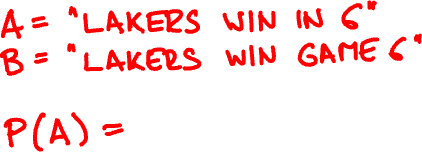 A = "LAKERS WIN IN 6"
B = "LAKERS WIN GAME 6"
P(A) =